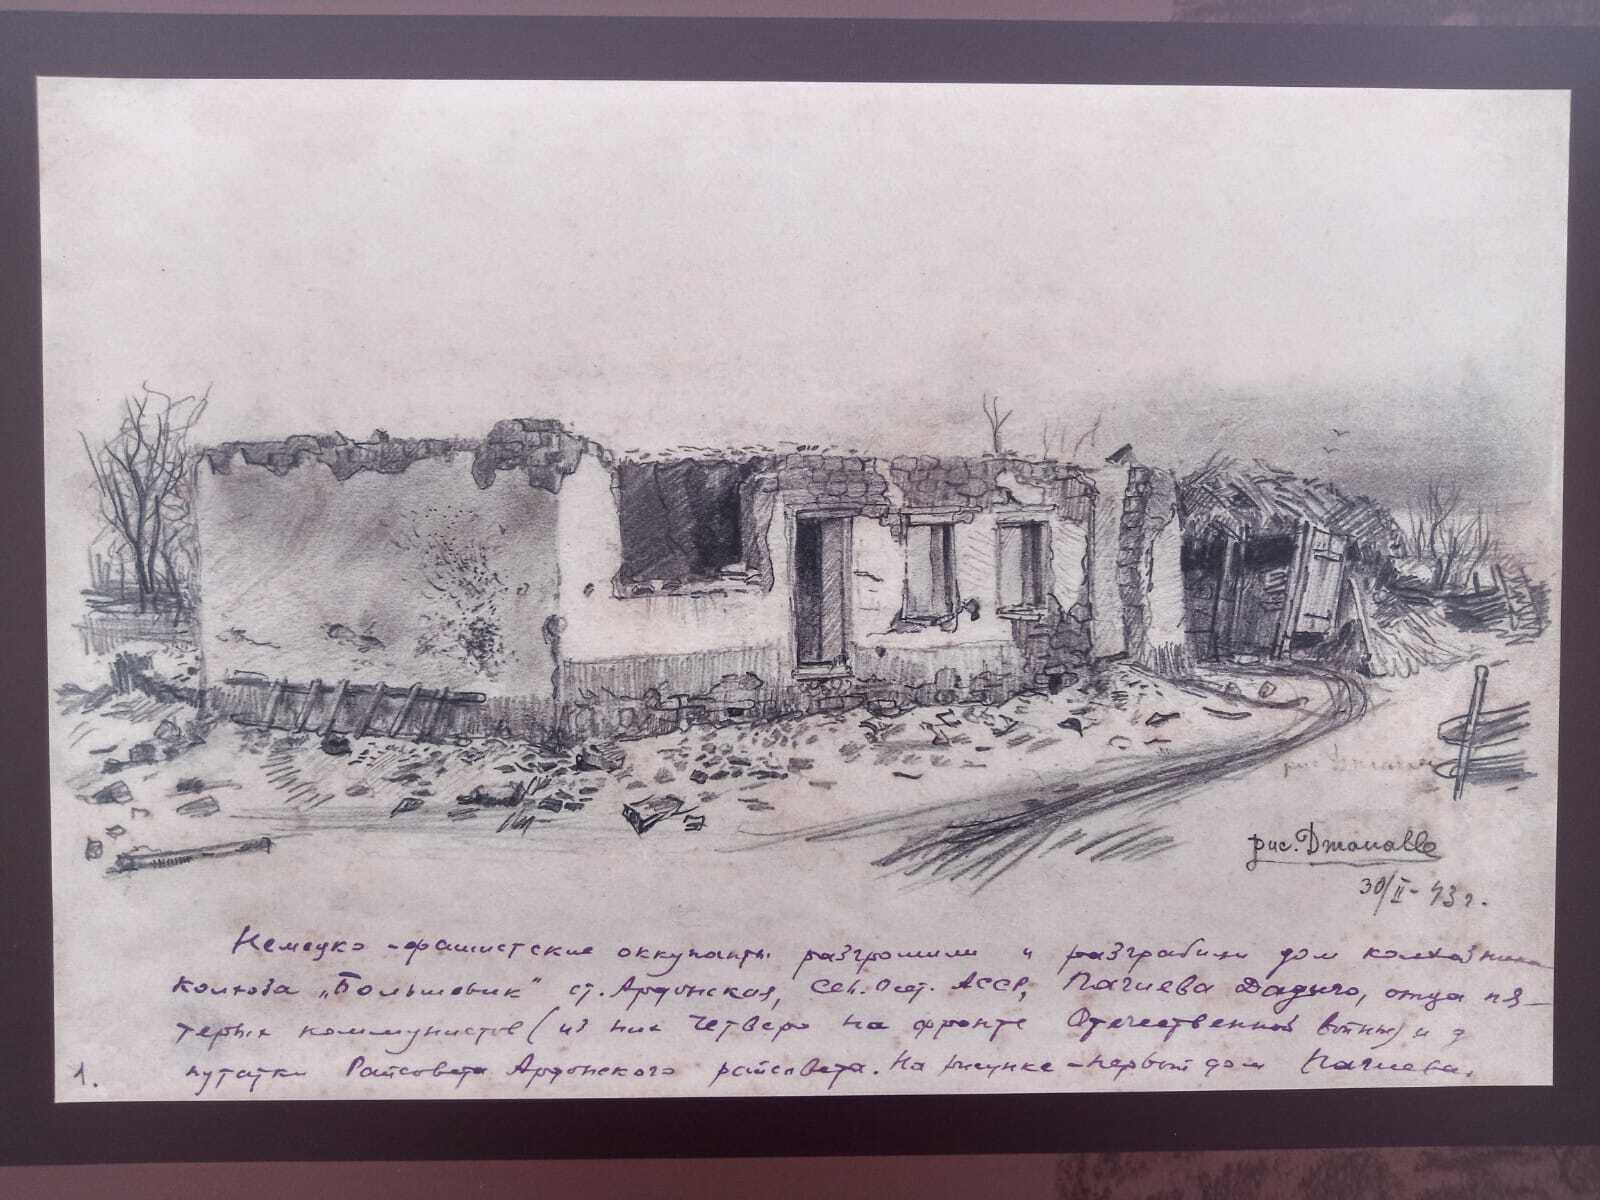 рис. Джанаев
рис. Джанаев
30/II-43 г.
Немецко-фашистские оккупанты разгромили и разграбили дом колхозника
колхоза „Большевик" ст. Ардонская, Сев. Осет. АССР, Пагиева Дадыго, отца пя-
терых коммунистов (из них четверо на фронте Отечественной войны) и д
путатки Райсовета Ардонского райсовета. На рисунке - первый дом Пагиева.
1.